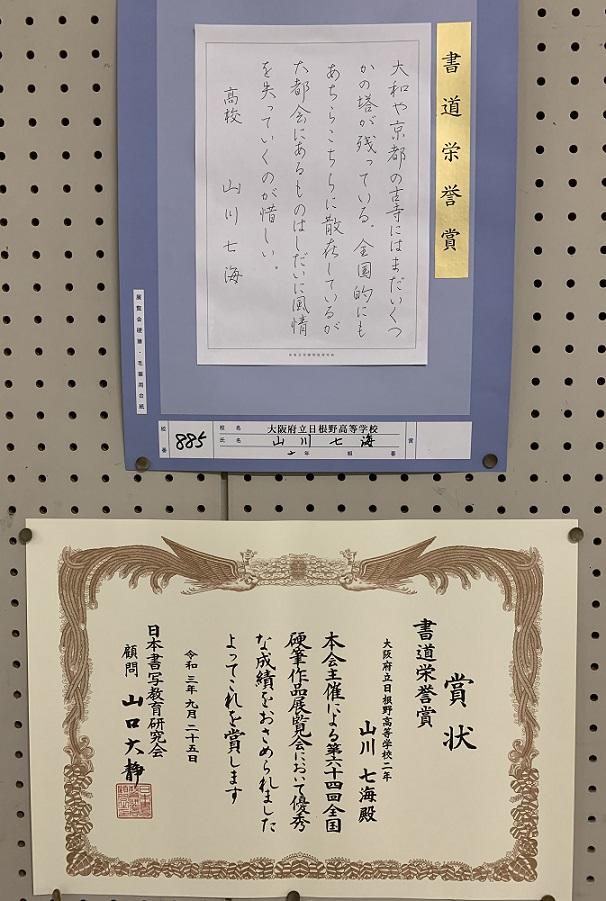 書道栄誉賞
大和や京都の古寺にはまだいくつ
かの塔が残っている。全国的にも
あちらこちらに散在しているが
大都会にあるものはしだいに風情
を失っていくのが惜しい。
高校 山川七海
展覧会硬筆・毛筆用台紙
総番 885
校名 大阪府立日根野高等学校
氏名 山川七海
年 組 番
賞
賞状
書道栄誉賞
大阪府立日根野高等学校二年
山川 七海殿
本会主催による第六十四回全国
硬筆作品展覧会において優秀
な成績をおさめられました
よってこれを賞します
令和三年九月二十五日
日本書写教育研究会
顧問 山口大静